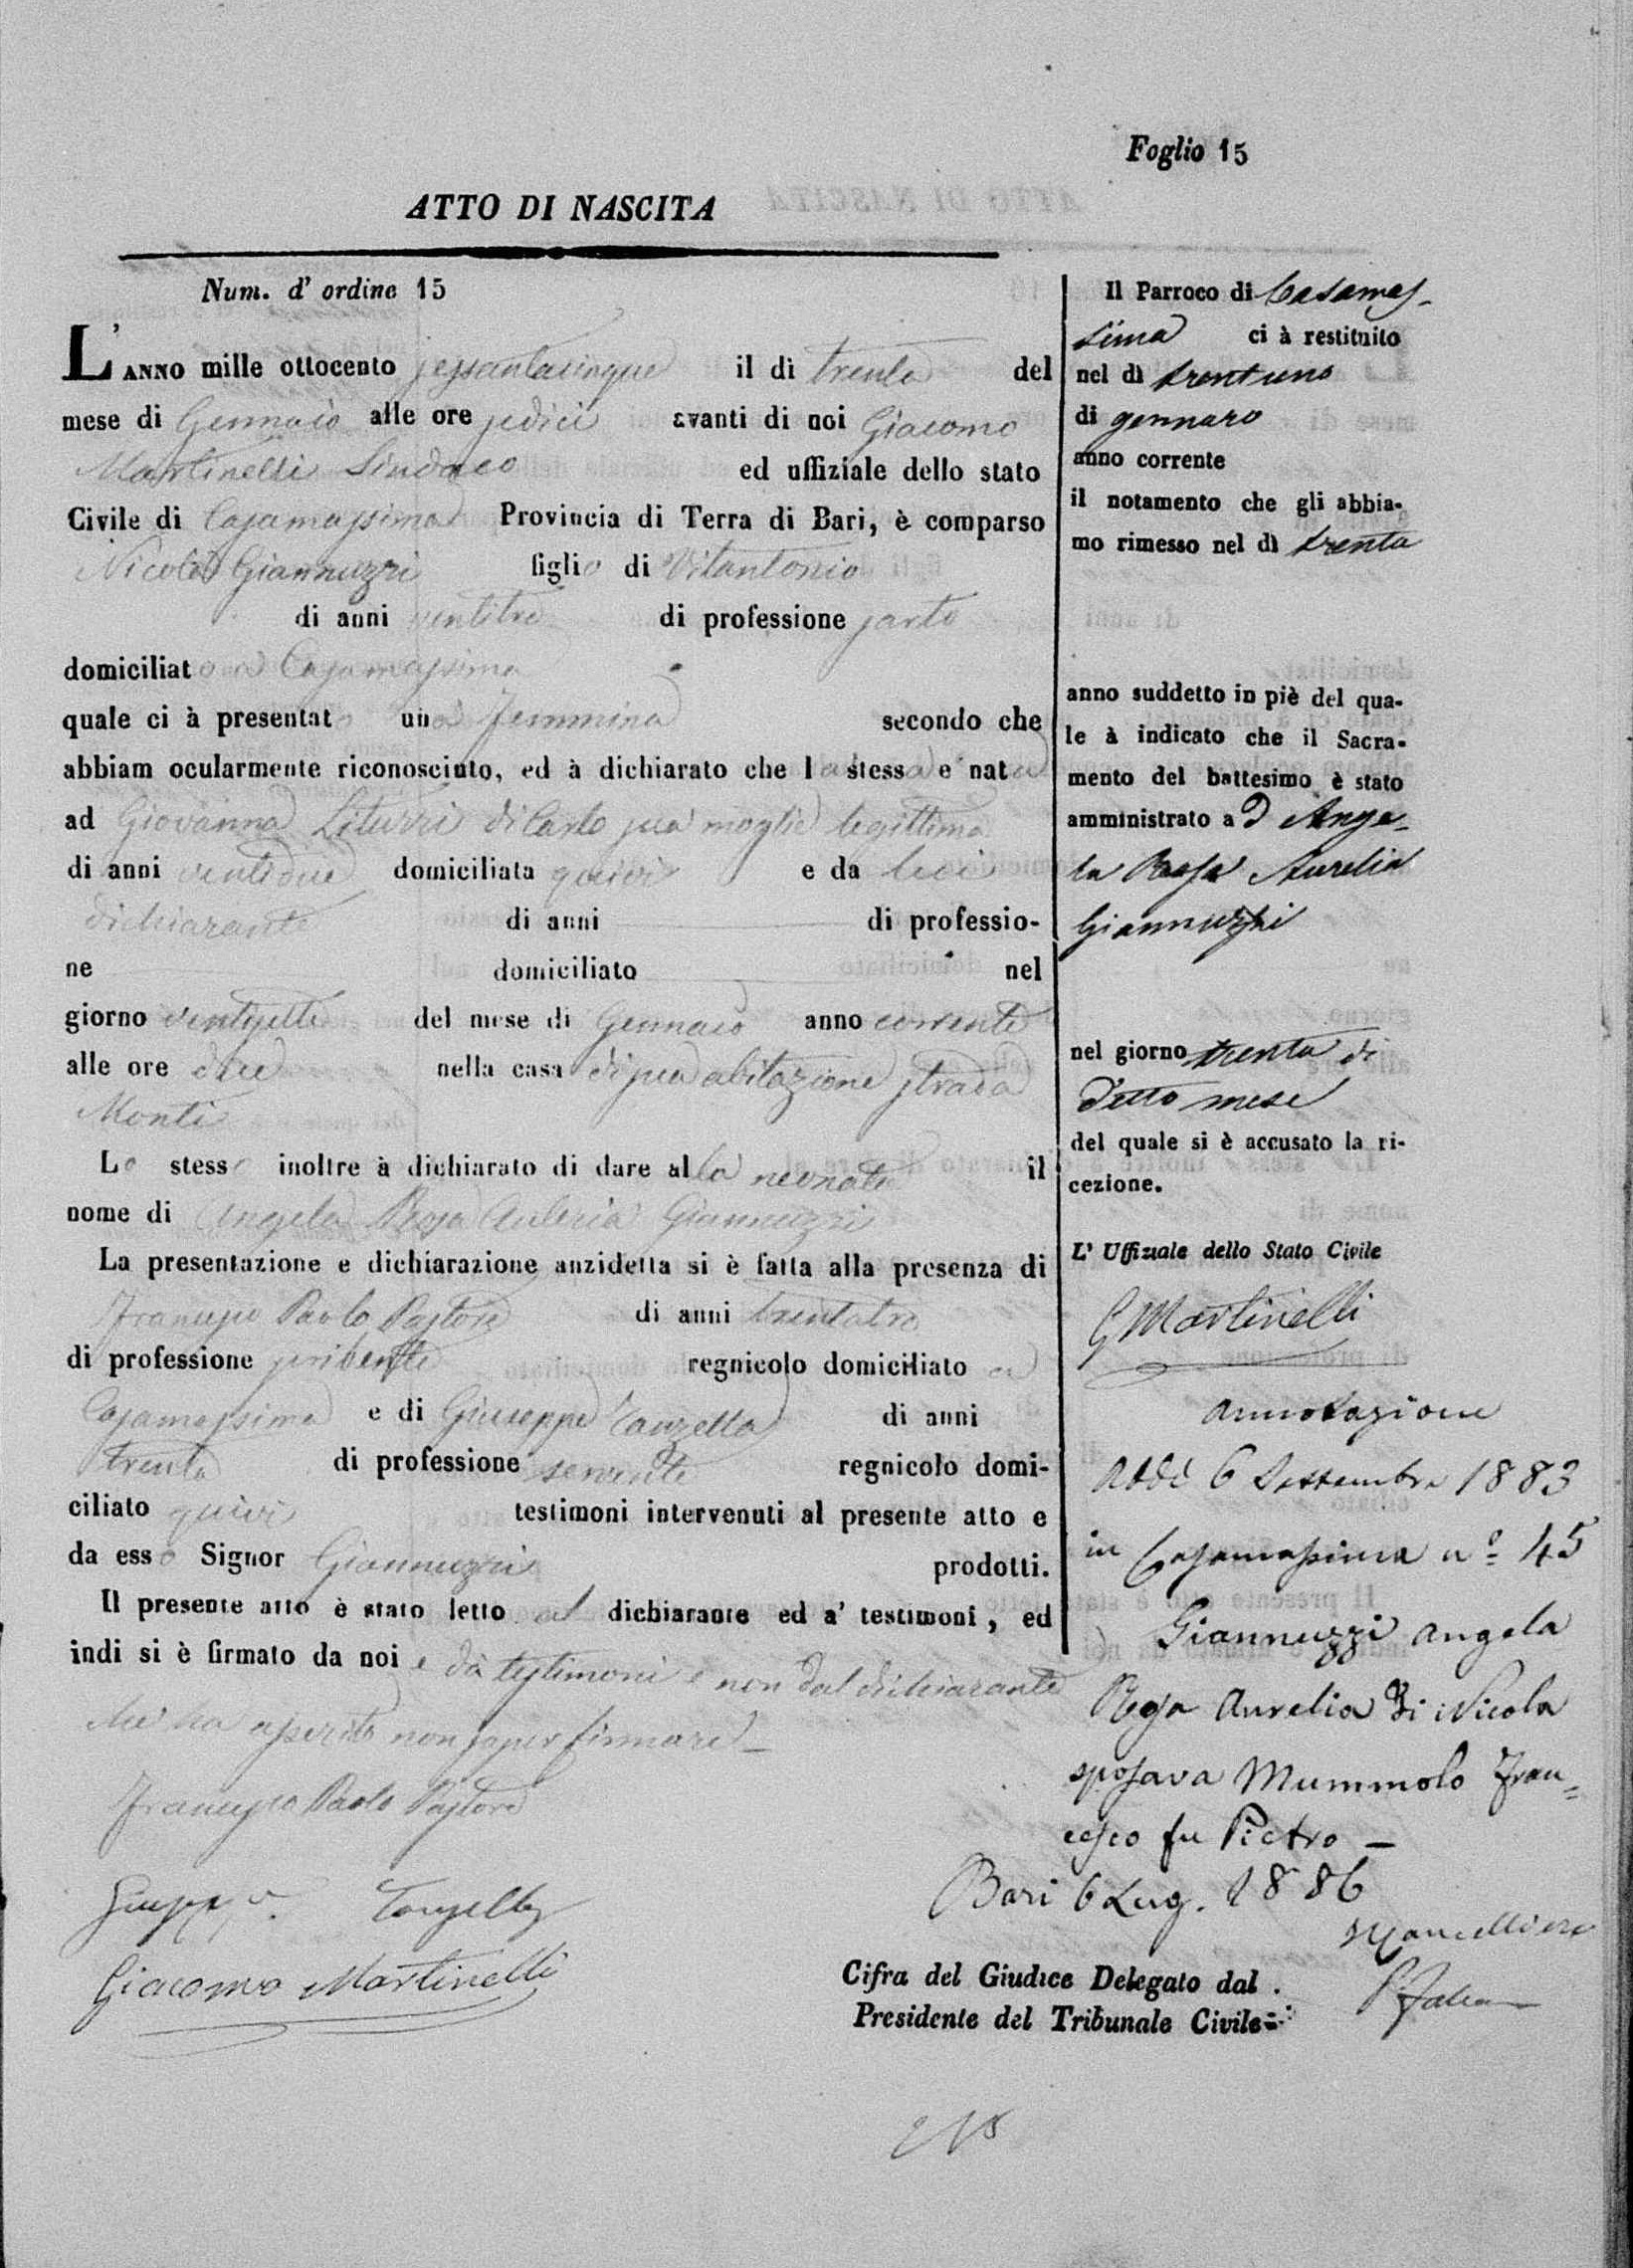 Foglio 15
ATTO DI NASCITA
Num. d' ordine 15
L'ANNO mille ottocento sessantacinque il di trenta del
mese di Gennaio alle ore sedici avanti di noi Giacomo
Martinelli Sindaco ed uffiziale dello stato
Civile di Casamassima Provincia di Terra di Bari, è comparso
Nicola Giannuzzi figlio di Vitantonio
di anni ventitre di professione sarto
domiciliato a Casamassima
quale ci à presentato una femmina secondo che
abbiam ocularmente riconosciuto, ed à dichiarato che la stessa e' nata
ad Giovanna Liturri di Carlo sua moglie legittima
di anni ventidue domiciliata quivi e da lui
dichiarante di anni di professio-
ne domiciliato nel
giorno ventisette del mese di Gennaio anno corrente
alle ore due nella casa di sua abitazione strada
Monti
Lo stesso inoltre à dichiarato di dare alla neonata il
nome di Angela Rosa Auleria Giannuzzi
La presentazione e dichiarazione anzidetta si è fatta alla presenza di
Francesco Paolo Pastore di anni trentatre
di professione scribente regnicolo domiciliato a
Casamassima e di Giuseppe Tanzella di anni
trenta di professione servente regnicolo domi-
ciliato quivi testimoni intervenuti al presente atto e
da esso Signor Giannuzzi prodotti.
Il presente atto è stato letto al dichiarante ed a' testimoni, ed
indi si è firmato da noi e da testimoni e non dal dichiarante
che ha asserito non saper firmare –
Francesco Paolo Pastore
Giuseppe Tanzella
Giacomo Martinelli
Il Parroco di Casamas-
sima ci à restituito
nel dì trentuno
di gennaro
anno corrente
il notamento che gli abbia-
mo rimesso nel dì trenta
anno suddetto in piè del qua-
le à indicato che il Sacra-
mento del battesimo è stato
amministrato a d Ange-
la Rosa Aurelia
Giannuzzi
nel giorno trenta di
detto mese
del quale si è accusato la ri-
cezione.
L' Uffiziale dello Stato Civile
G Martinelli
Annotazione
Addì 6 Settembre 1883
in Casamassima n° 45
Giannuzzi Angela
Rosa Aurelia di Nicola
sposava Mummolo Fran=
cesco fu Pietro –
Bari 6 Lug. 1886
Cifra del Giudice Delegato dal
Presidente del Tribunale Civile